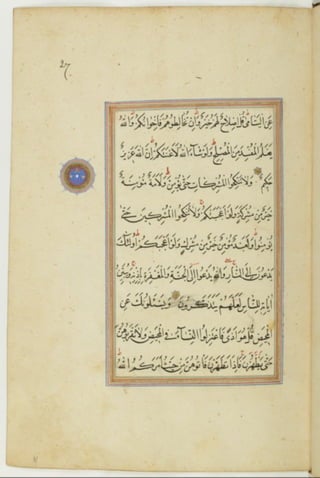 27
عَنِ الْيَتَامٰى قُلْ اِصْلَاحٌ لَهُمْ خَيْرٌ وَاِنْ تُخَالِطُوهُمْ فَاِخْوَانُكُمْ وَاللّٰهُ
يَعْلَمُ الْمُفْسِدَ مِنَ الْمُصْلِحِ وَلَوْ شَاءَ اللّٰهُ لَاَعْنَتَكُمْ اِنَّ اللّٰهَ عَزِيزٌ
حَكِيمٌ وَلَا تَنْكِحُوا الْمُشْرِكَاتِ حَتّٰى يُؤْمِنَّ وَلَاَمَةٌ مُؤْمِنَةٌ
خَيْرٌ مِنْ مُشْرِكَةٍ وَلَوْ اَعْجَبَتْكُمْ وَلَا تُنْكِحُوا الْمُشْرِكِينَ حَتّٰى
يُؤْمِنُوا وَلَعَبْدٌ مُؤْمِنٌ خَيْرٌ مِنْ مُشْرِكٍ وَلَوْ اَعْجَبَكُمْ اُولٰئِكَ
يَدْعُونَ اِلَى النَّارِ وَاللّٰهُ يَدْعُوا اِلَى الْجَنَّةِ وَالْمَغْفِرَةِ بِاِذْنِهِ وَيُبَيِّنُ
اٰيَاتِهِ لِلنَّاسِ لَعَلَّهُمْ يَتَذَكَّرُونَ وَيَسْـَٔلُونَكَ عَنِ
الْمَحِيضِ قُلْ هُوَ اَذًى فَاعْتَزِلُوا النِّسَاءَ فِى الْمَحِيضِ وَلَا تَقْرَبُوهُنَّ
حَتّٰى يَطْهُرْنَ فَاِذَا تَطَهَّرْنَ فَاْتُوهُنَّ مِنْ حَيْثُ اَمَرَكُمُ اللّٰهُ